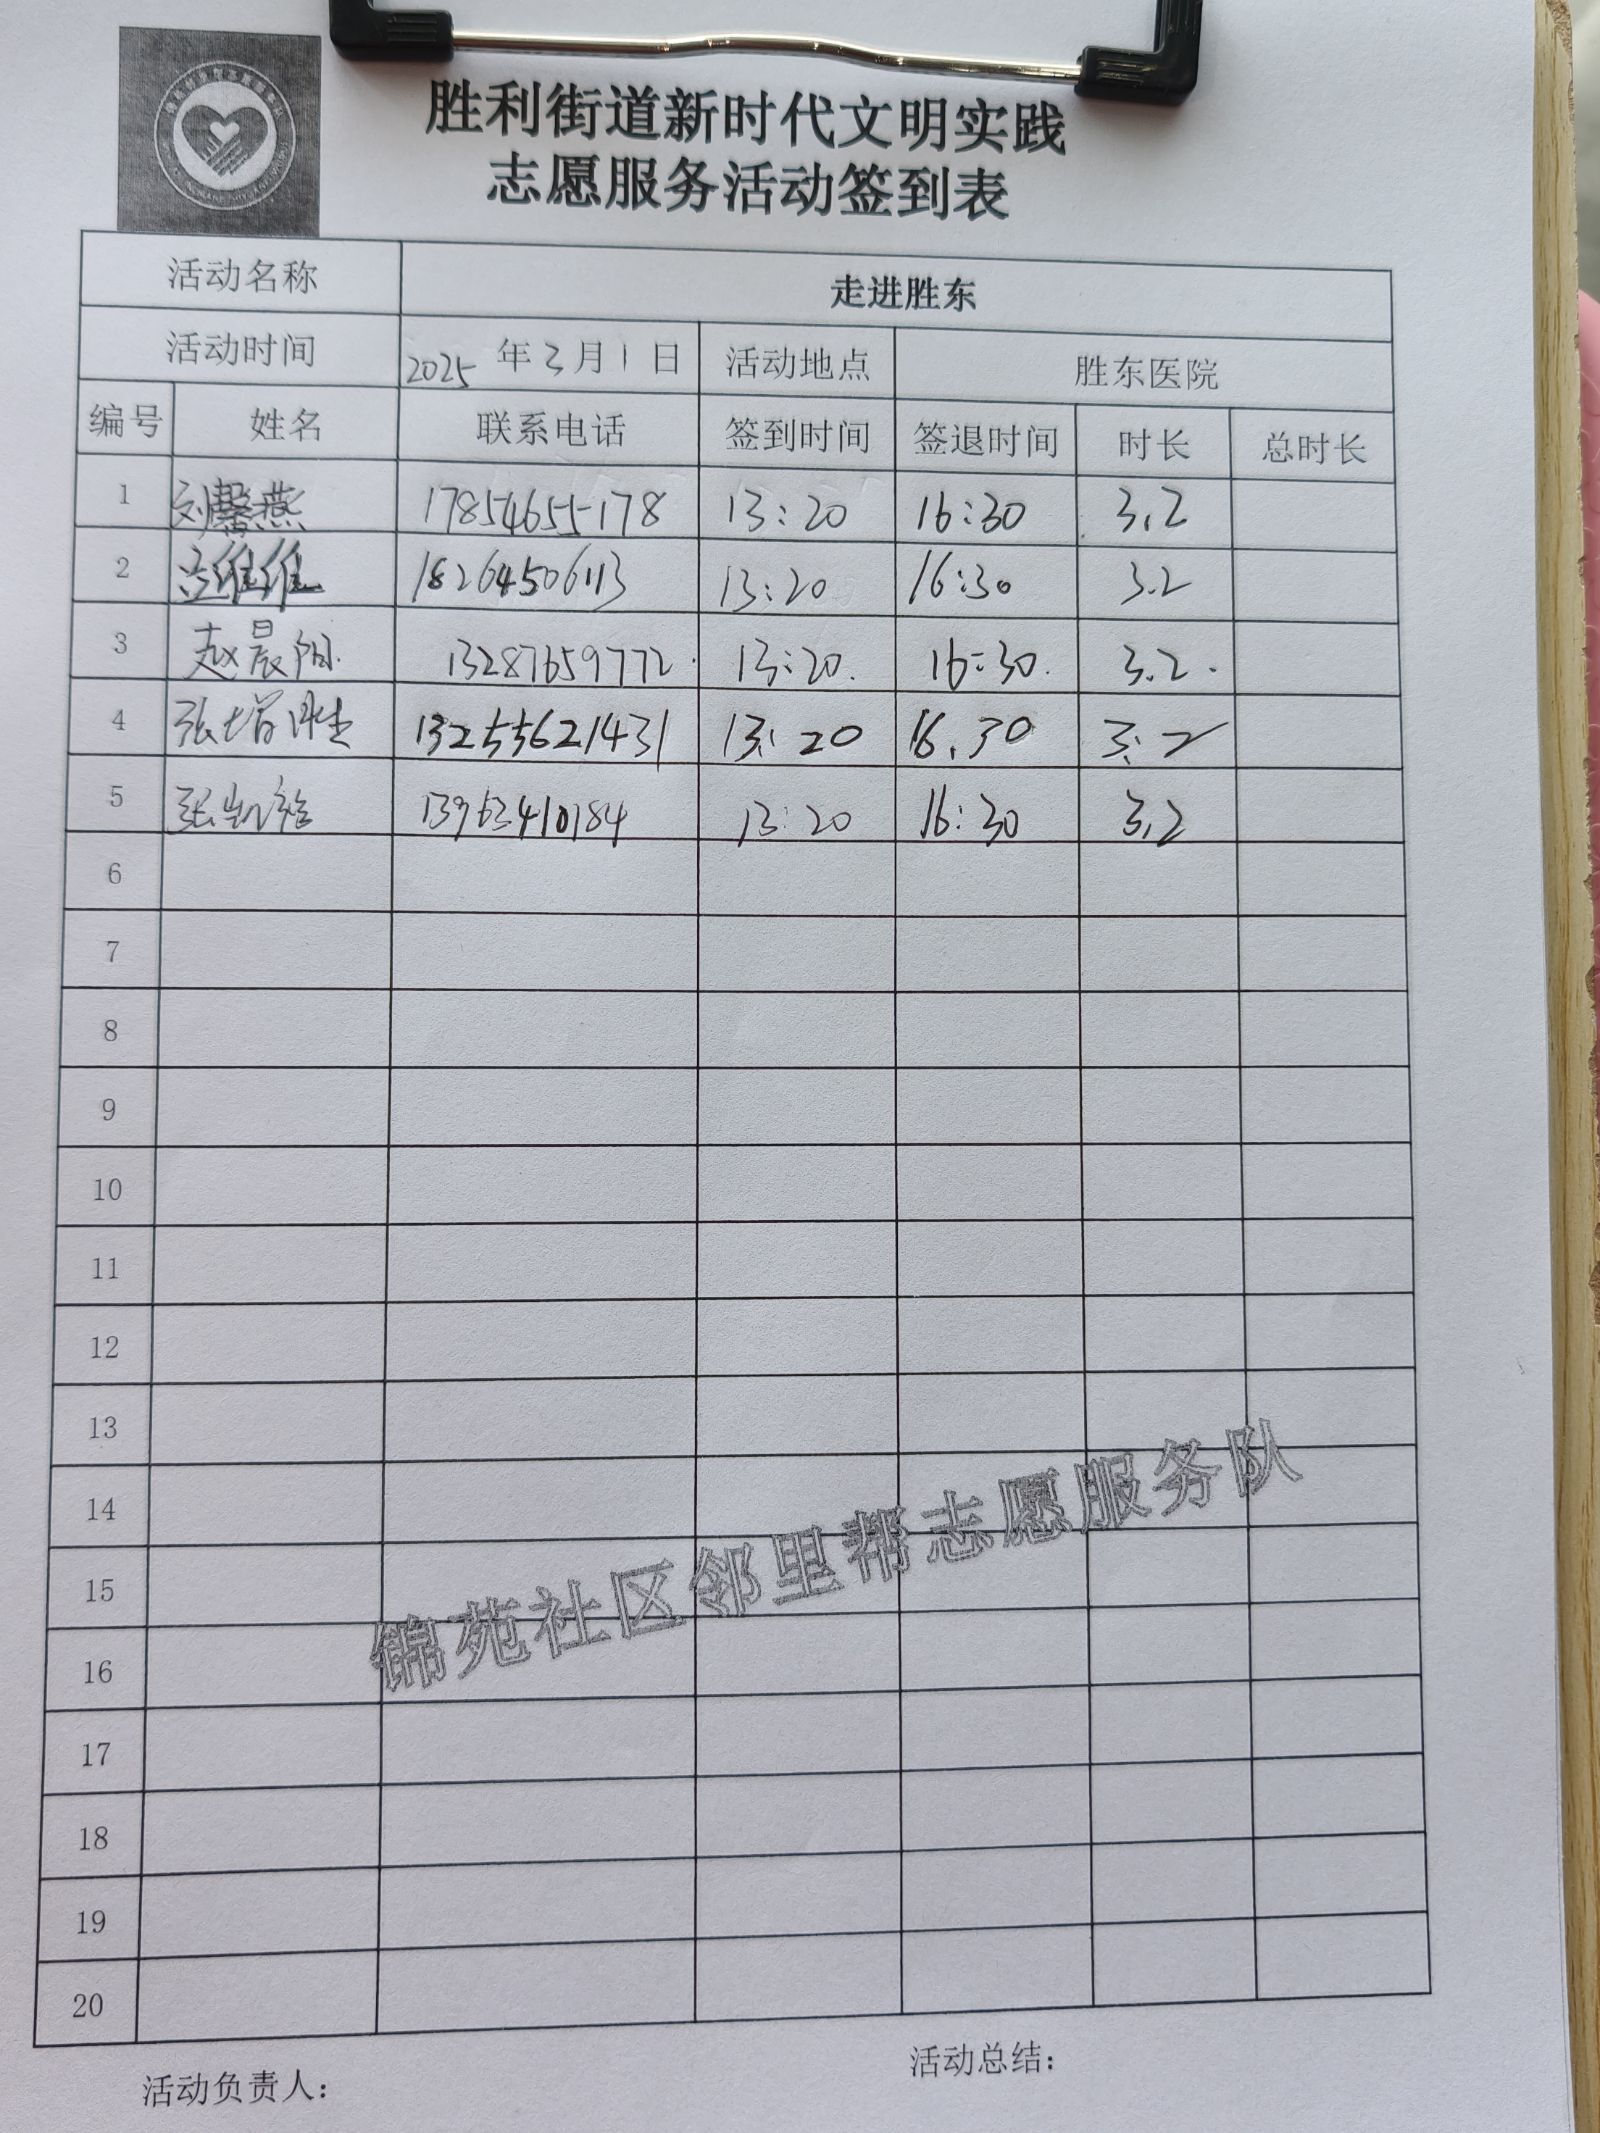 胜利街道新时代文明实践
志愿服务活动签到表
活动名称 走进胜东
活动时间 2025年3月1日 活动地点 胜东医院
编号 姓名 联系电话 签到时间 签退时间 时长 总时长
1 刘馨燕 17854655178 13:20 16:30 3.2
2 维维 18264506113 13:20 16:30 3.2
3 赵晨阳. 13287659772. 13:20. 16:30. 3.2.
4 张增胜 13255621431 13:20 16.30 3.2
5 张凯 13963410184 13:20 16:30 3.2
6
7
8
9
10
11
12
13
14
15
16
17
18
19
20
锦苑社区邻里帮志愿服务队
活动负责人: 活动总结: